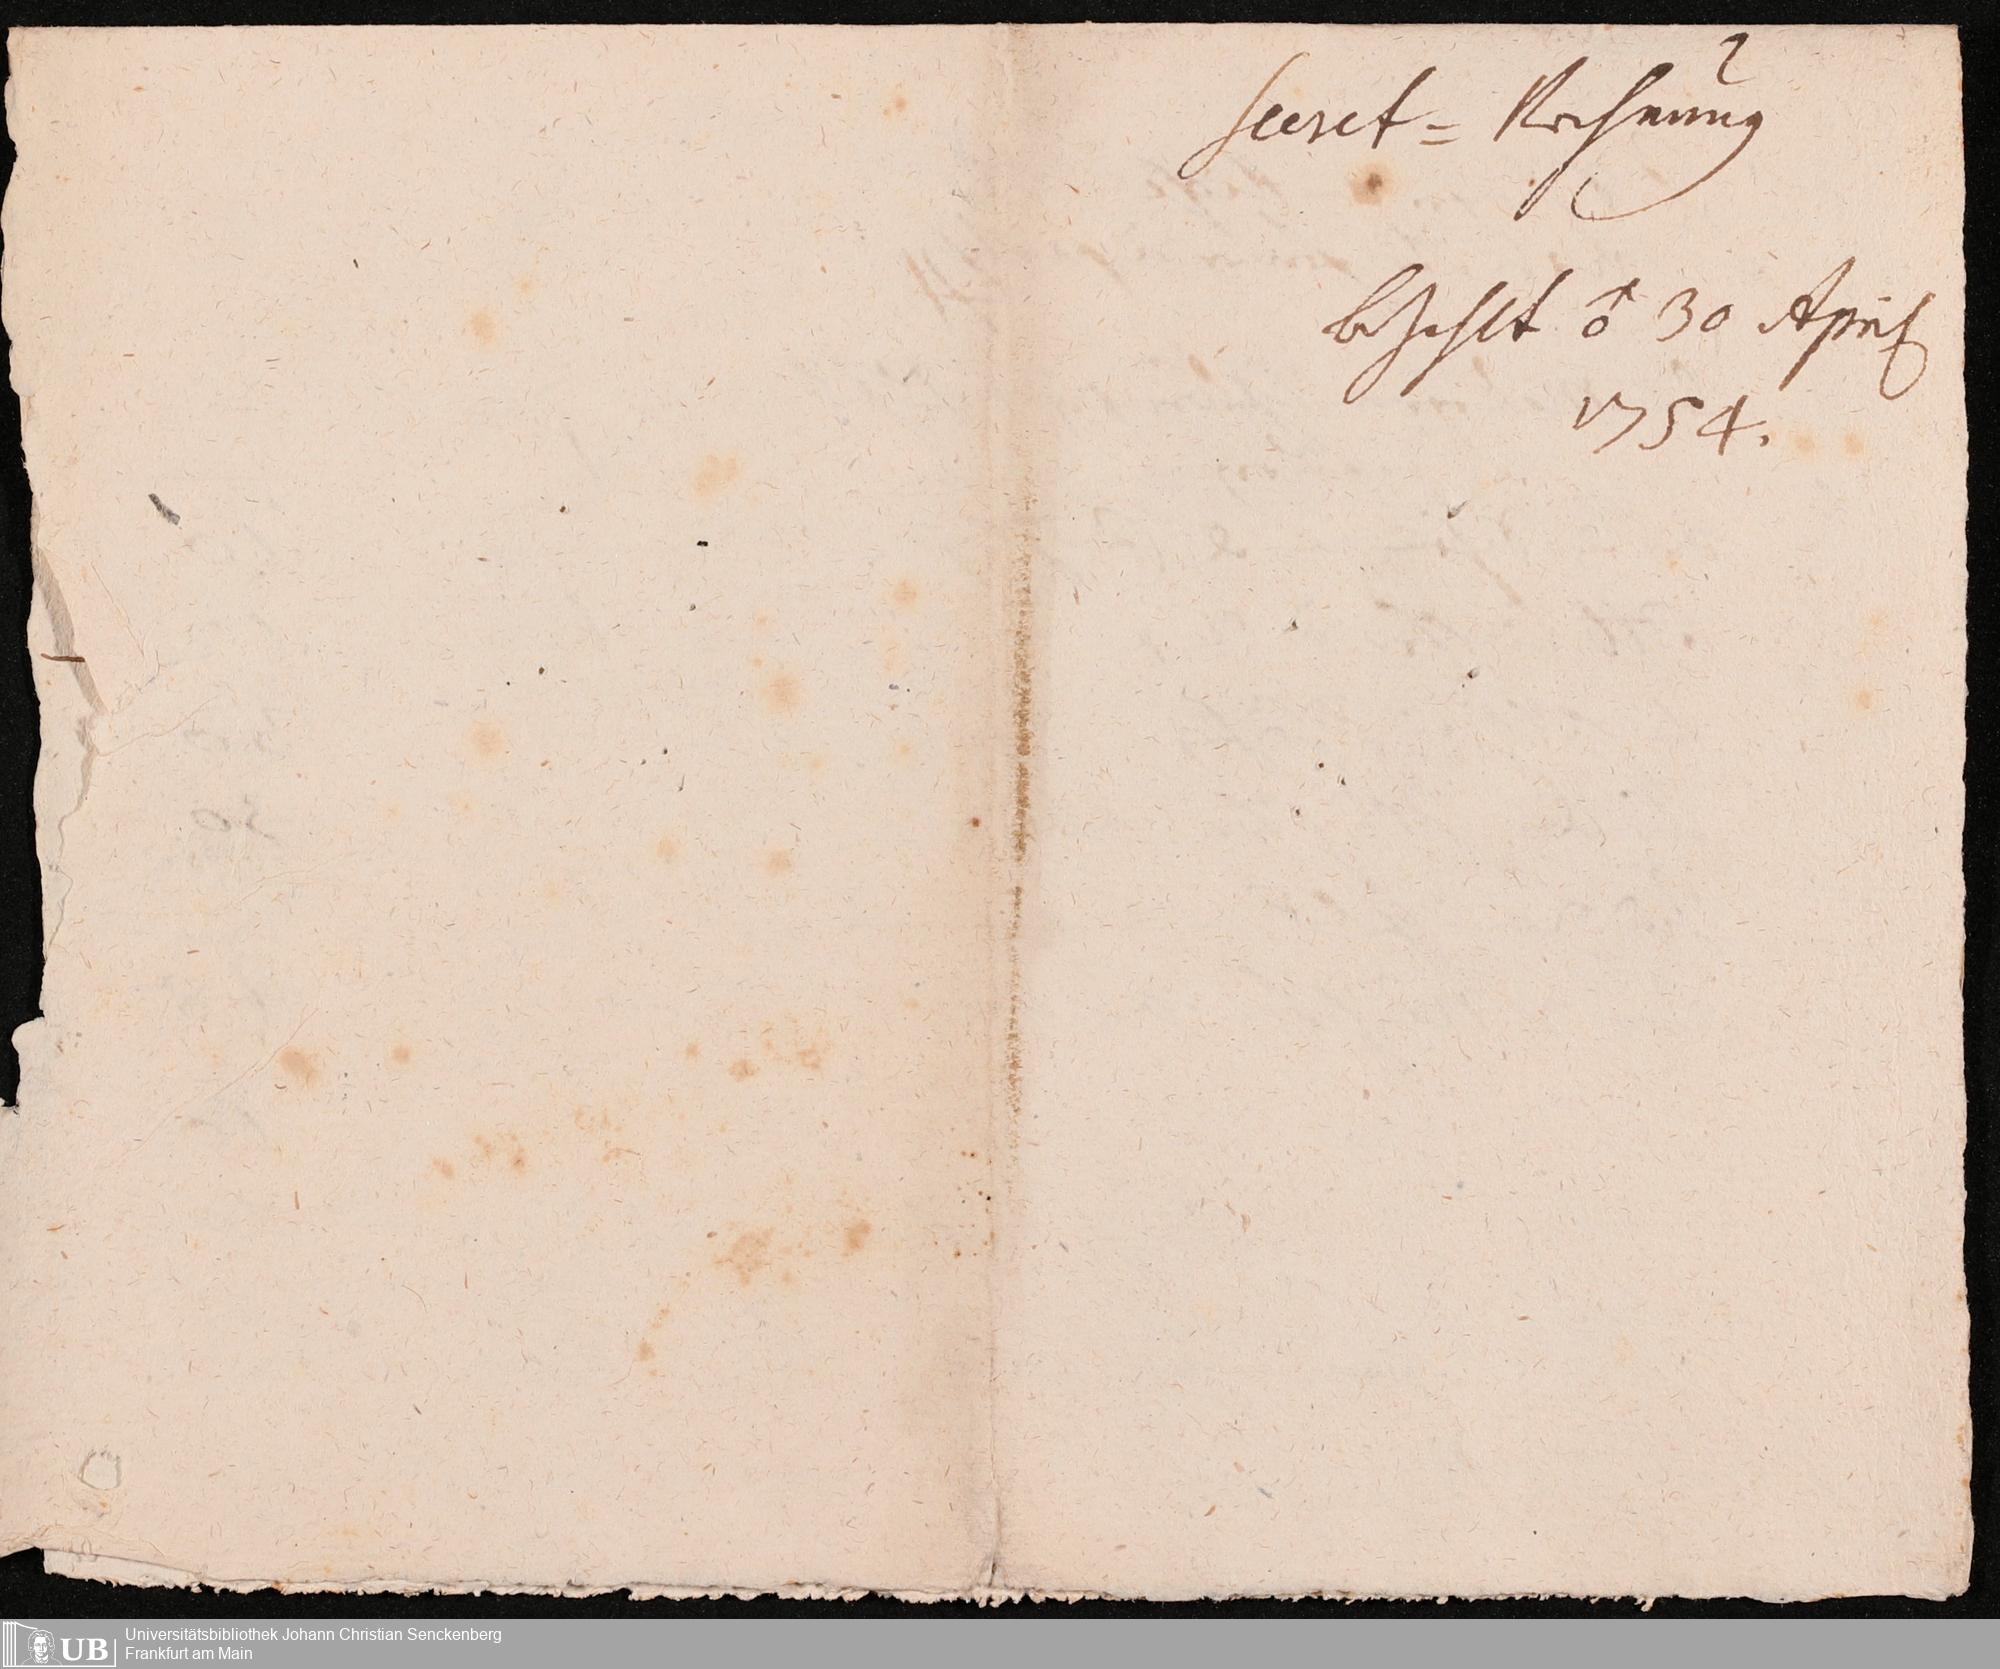 Secret = Rechnung
bezahlt ♂ 30 April
1754.
UB
Universitätsbibliothek Johann Christian Senckenberg
Frankfurt am Main